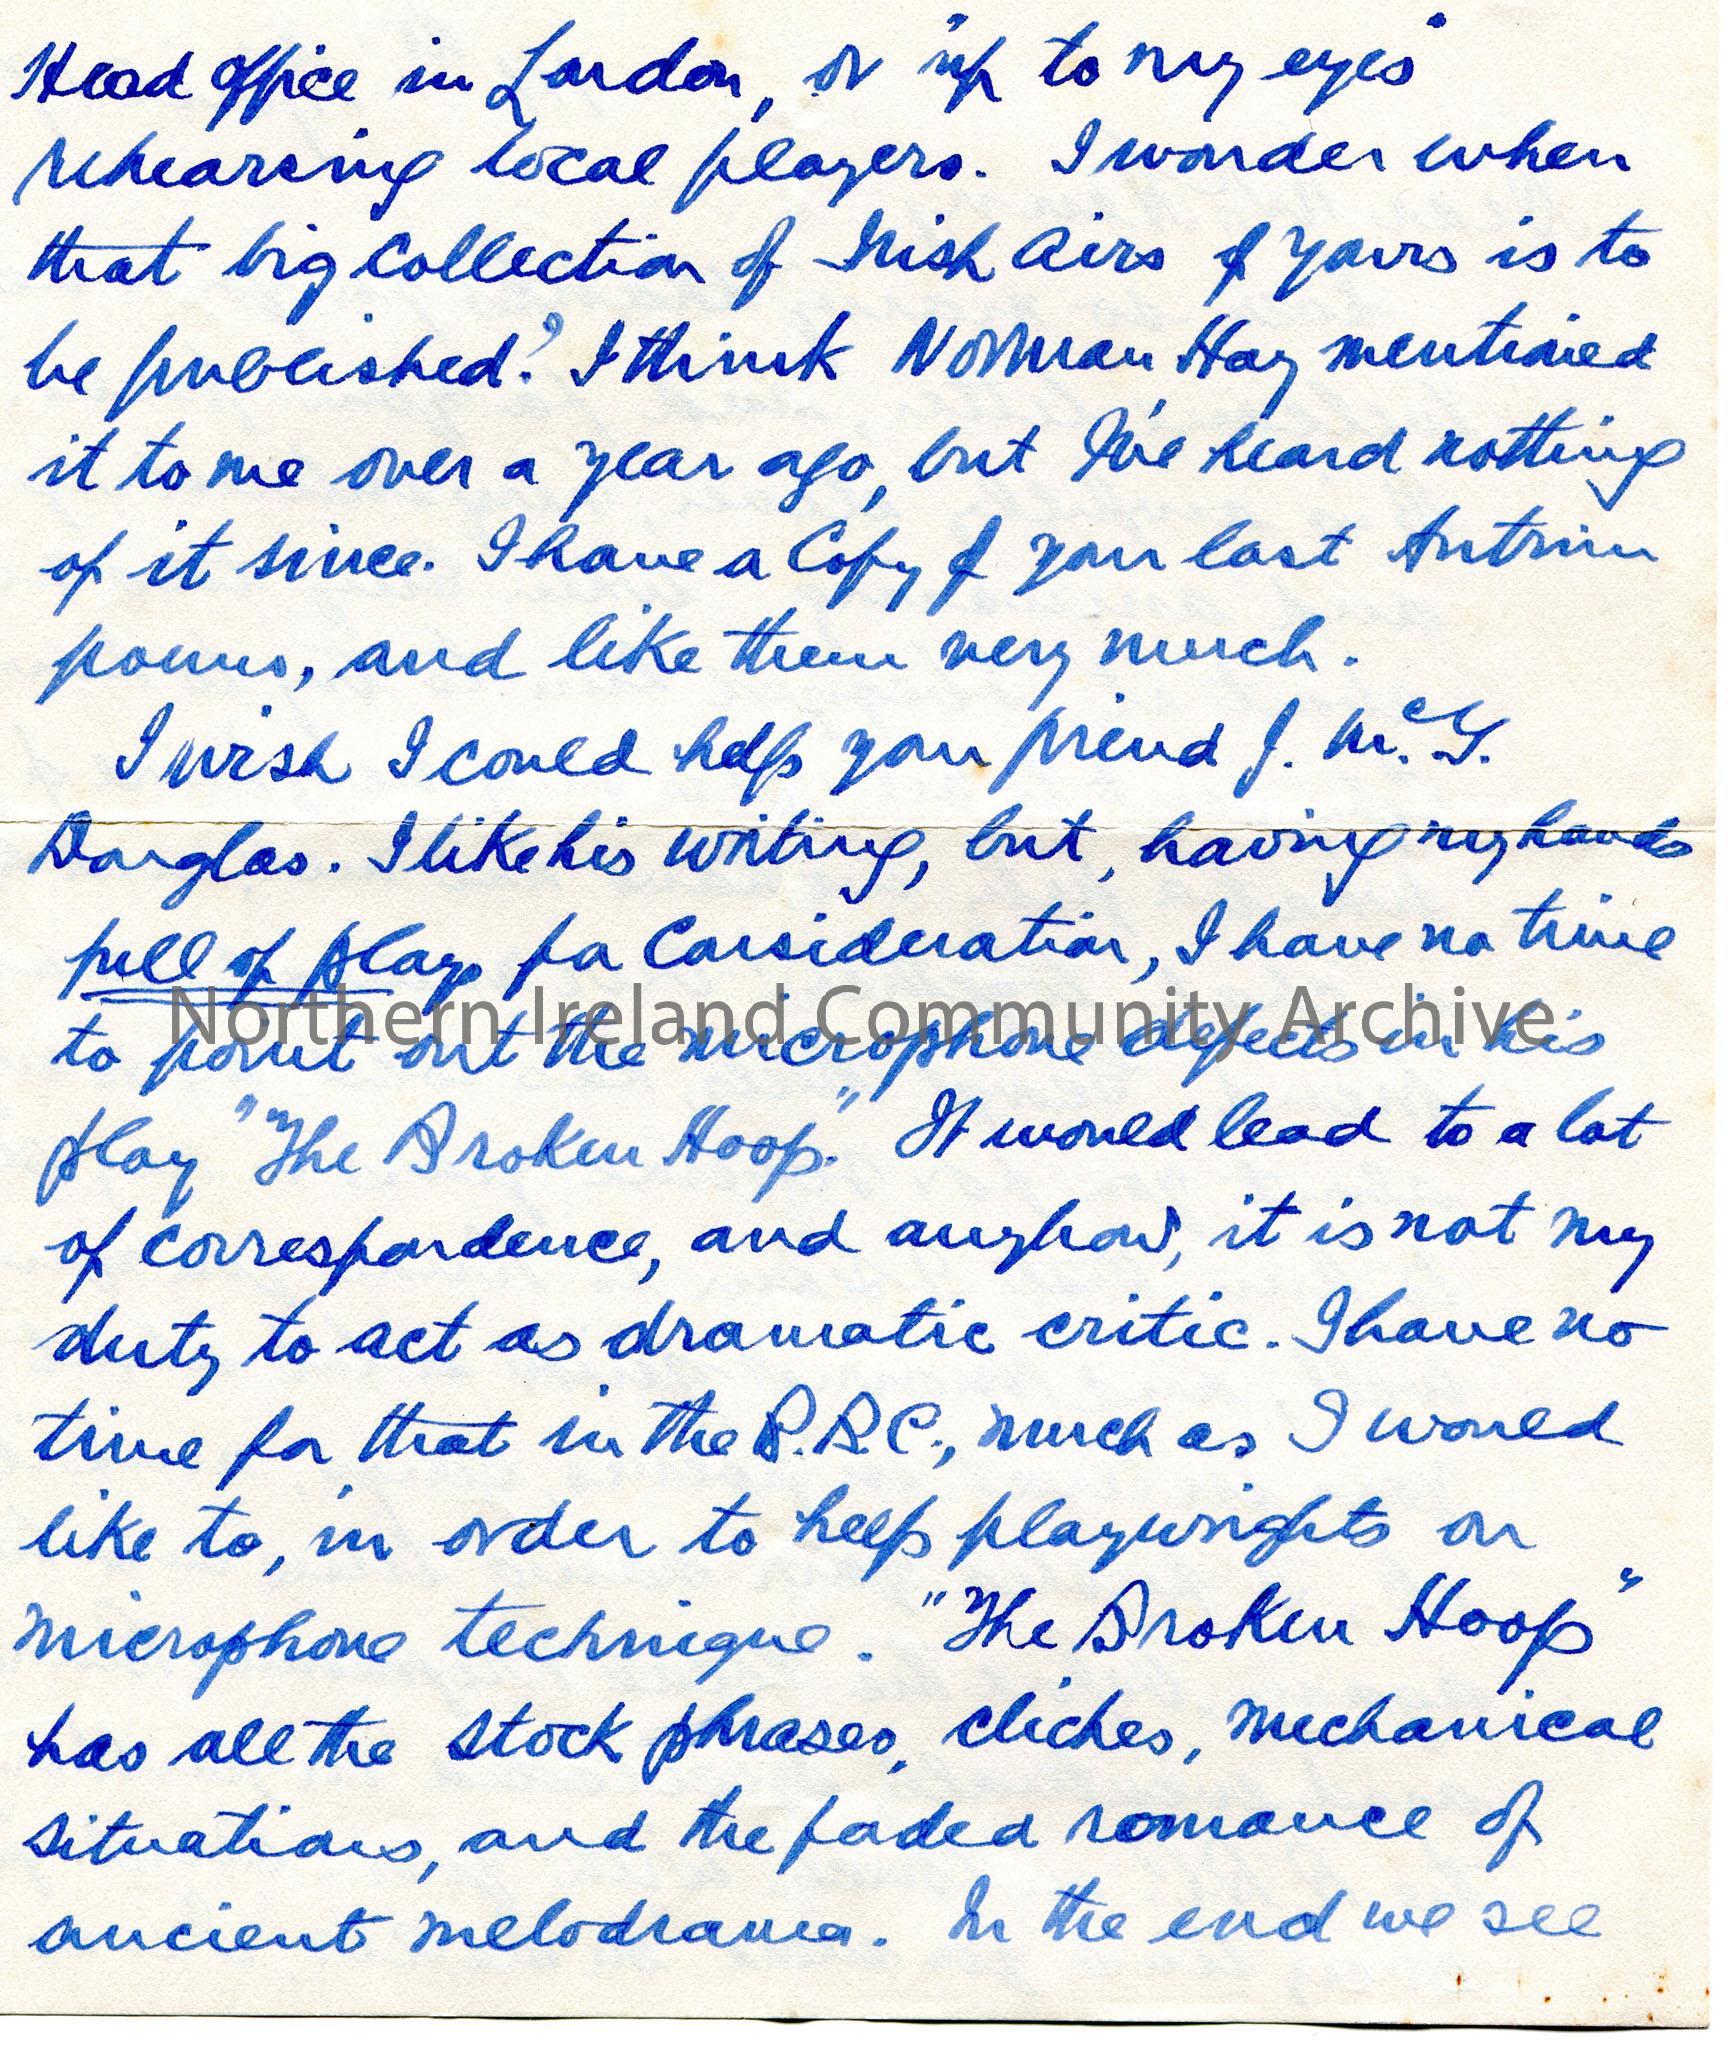 Head office in London, or "up to my eyes"
rehearsing local players. I wonder when
that big collection of Irish Airs of yours is to
be published? I think Norman Hay mentioned
it to me over a year ago, but I've heard nothing
of it since. I have a copy of your last Antrim
poems, and like them very much.
I wish I could help your friend J. McG.
Douglas. I like his writing, but, having my hands
full of plays for consideration, I have no time
Northern Ireland Community Archive
to point out the microphone defects in his
play "The Broken Hoop." It would lead to a lot
of correspondence, and anyhow, it is not my
duty to act as dramatic critic. I have no
time for that in the B.B.C., much as I would
like to, in order to help playwrights on
microphone technique. "The Broken Hoop"
has all the stock phrases, cliches, mechanical
situations, and the faded romance of
ancient melodrama. In the end we see